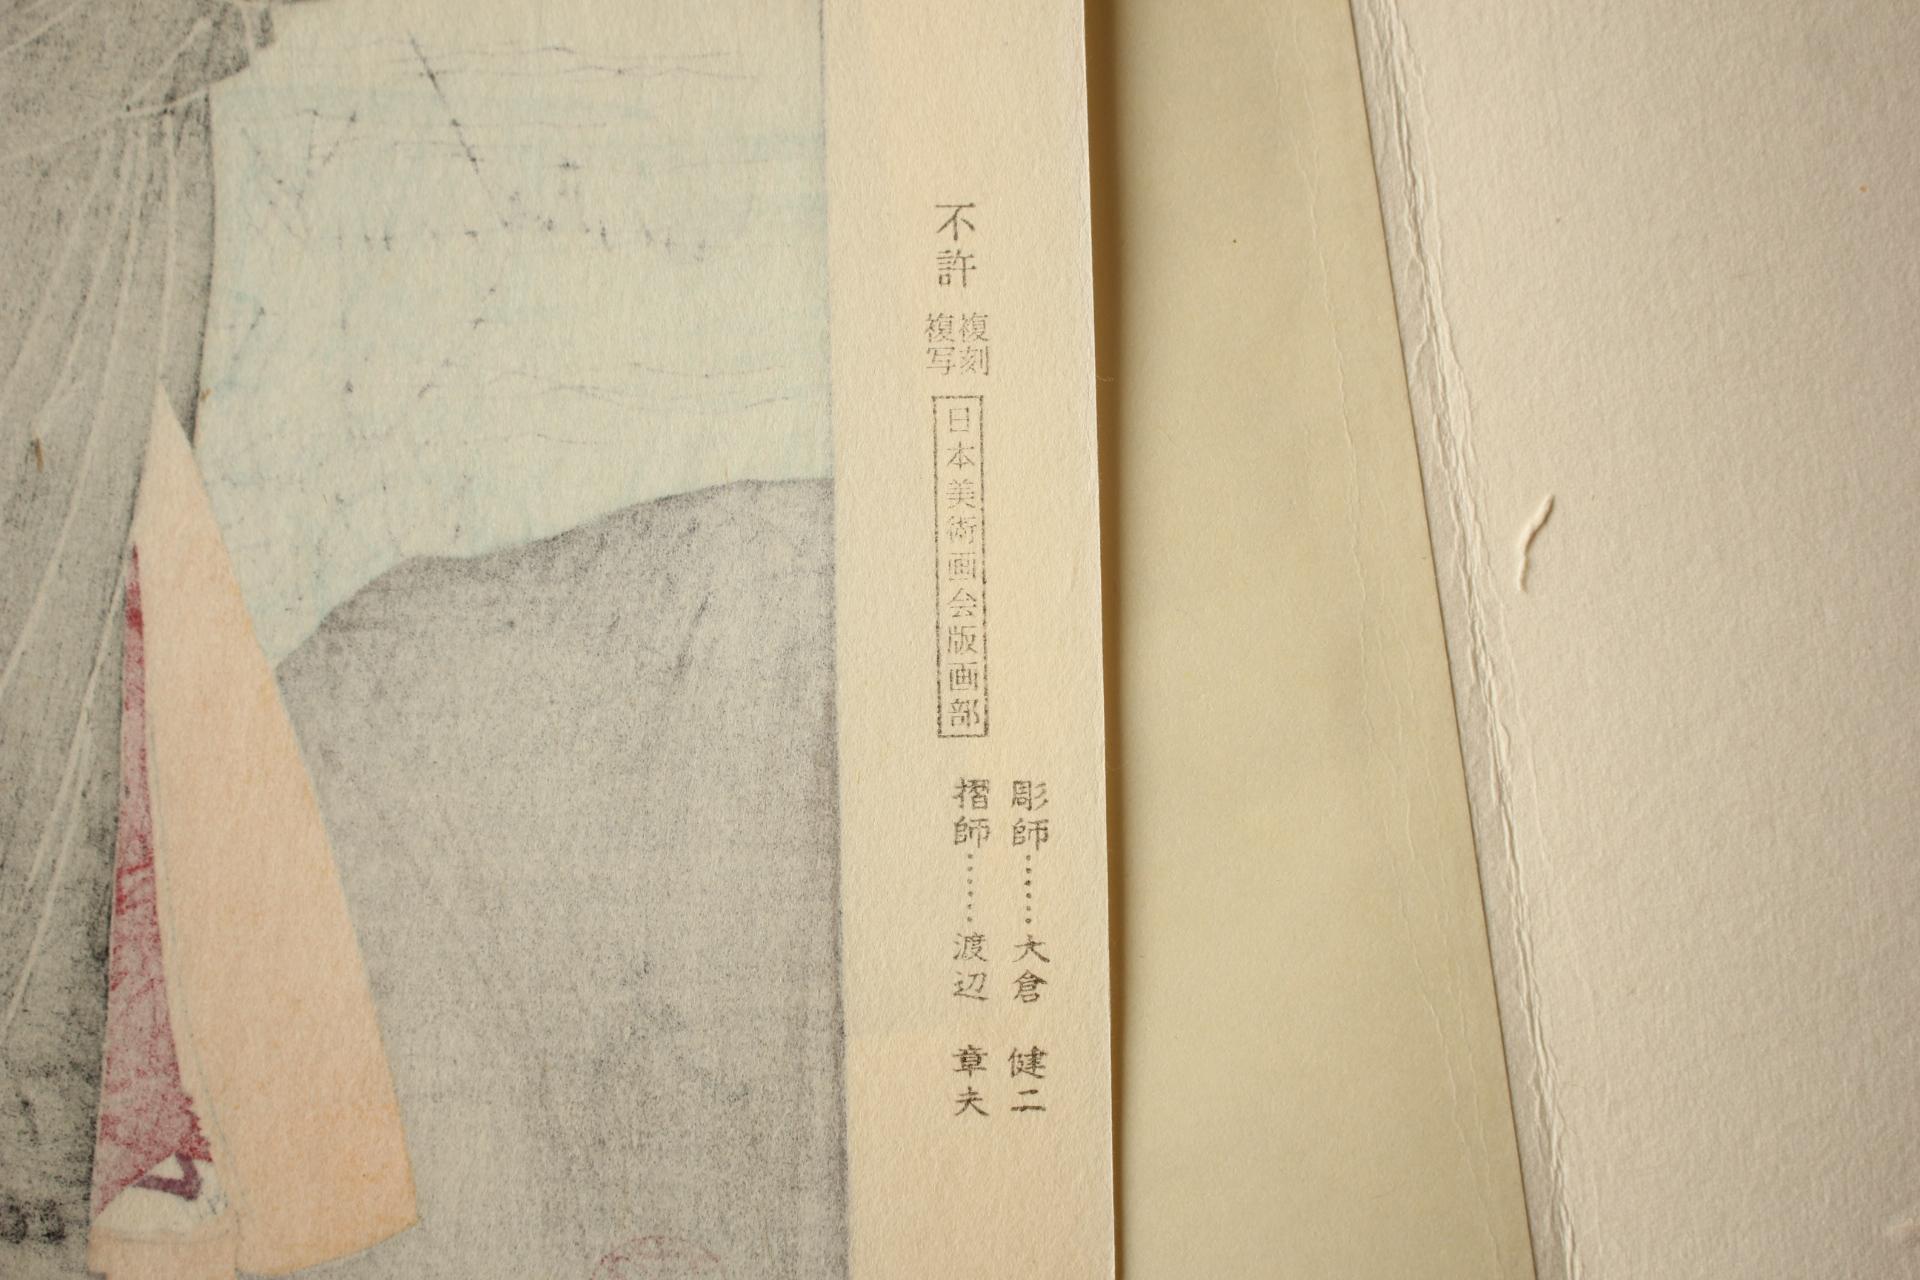 不許
複刻
複写
日本美術画会版画部
彫師………大倉 健二
摺師………渡辺 章夫